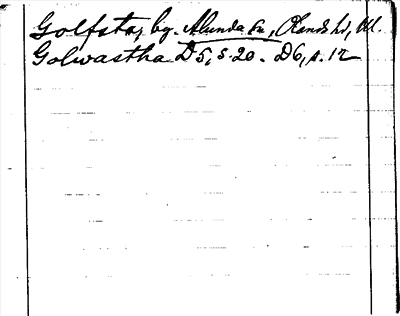 Golfsta, by. Alunda sn, Olands hd, Ul.
Golwastha D5, s. 20. D6, s. 12